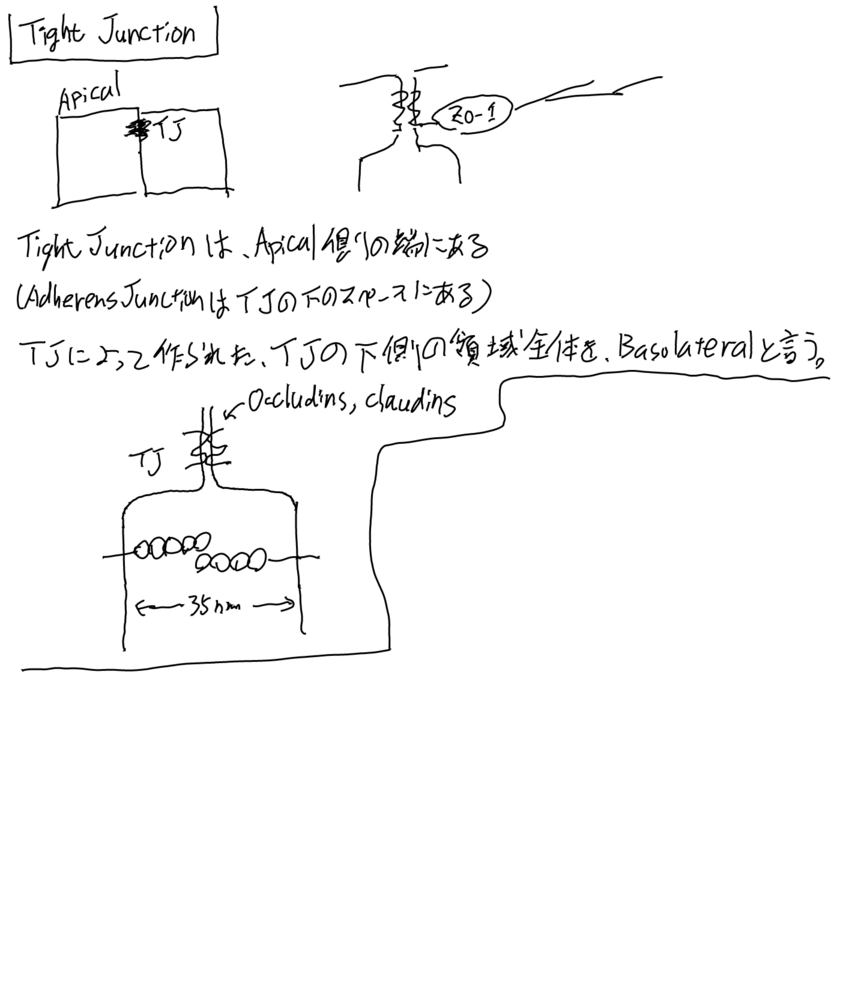 Tight Junction
Apical
TJ
ZO-1
Tight Junctionは、Apical側の端にある
(Adherens JunctionはTJの下のスペースにある)
TJによって作られた、TJの下側の領域全体を、Basolateralと言う。
Occludins, claudins
TJ
35nm